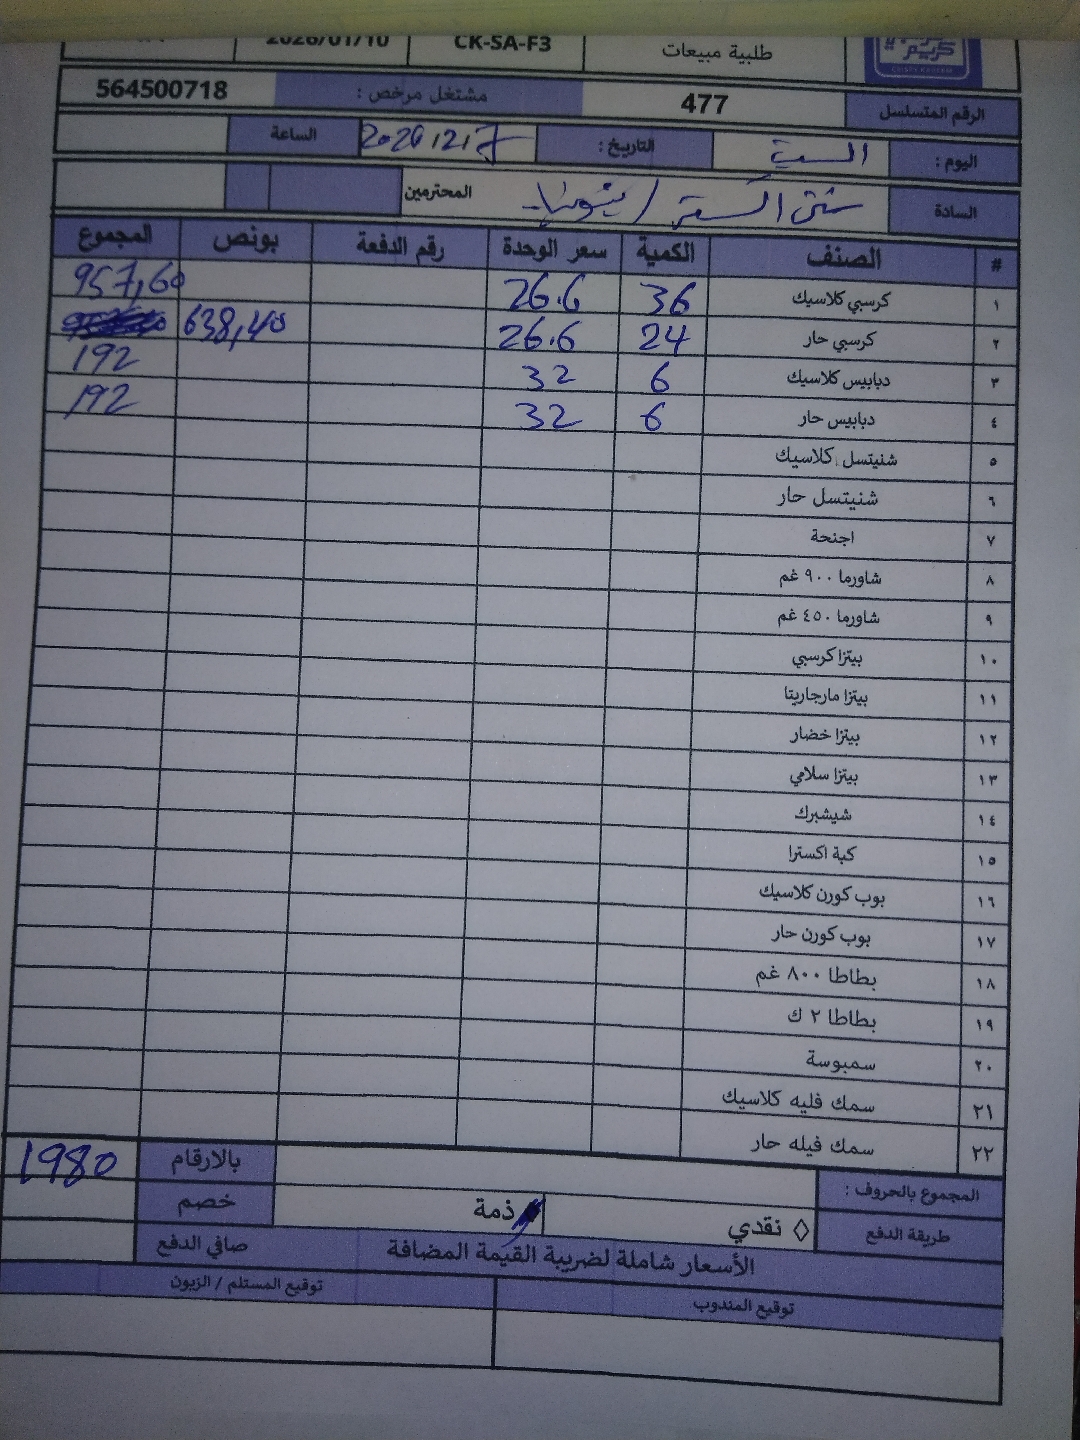 2026/01/10 CK-SA-F3 طلبية مبيعات كريم
الرقم المتسلسل 477 مشتغل مرخص : 564500718
اليوم : السبت التاريخ : 2026/2/7 الساعة
السادة المحترمين
# الصنف الكمية سعر الوحدة رقم الدفعة بونص المجموع
١ كرسبي كلاسيك 36 26.6 957,60
٢ كرسبي حار 24 26.6 638,40
٣ دبابيس كلاسيك 6 32 192
٤ دبابيس حار 6 32 192
٥ شنيتسل كلاسيك
٦ شنيتسل حار
٧ اجنحة
٨ شاورما ٩٠٠ غم
٩ شاورما ٤٥٠ غم
١٠ بيتزا كرسبي
١١ بيتزا مارجاريتا
١٢ بيتزا خضار
١٣ بيتزا سلامي
١٤ شيشبرك
١٥ كبة اكسترا
١٦ بوب كورن كلاسيك
١٧ بوب كورن حار
١٨ بطاطا ٨٠٠ غم
١٩ بطاطا ٢ ك
٢٠ سمبوسة
٢١ سمك فليه كلاسيك
٢٢ سمك فيله حار
المجموع بالحروف : بالارقام 1980
طريقة الدفع نقدي ذمة خصم
الأسعار شاملة لضريبة القيمة المضافة صافي الدفع
توقيع المندوب توقيع المستلم / الزبون